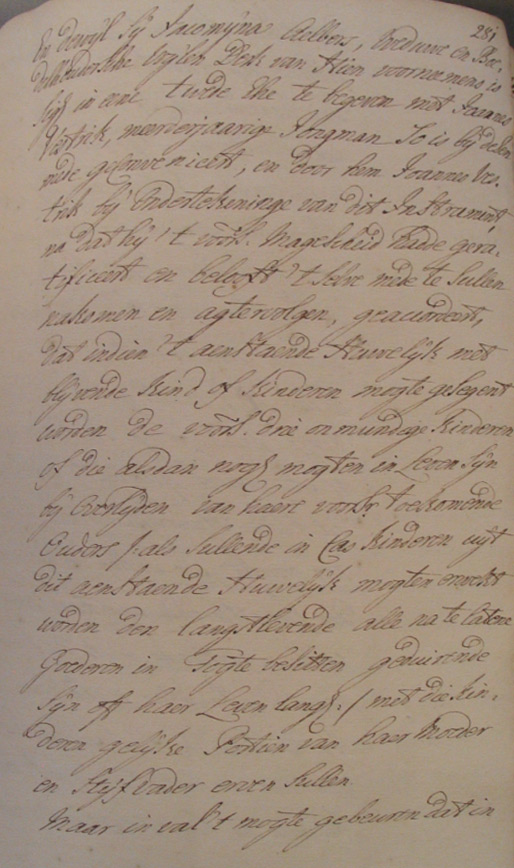 281
En dewijl Sij Jacomijna Aelbers, weduwe en Boe-
delhoudersche wijlen Derk van Hien voornemens is
sigh in eene twede Ehe te begeven met Joannes
Vertrik, meerderjaarige Jongman So is bij desen
mede geconvenieert, en door hem Joannes Ver-
trik bij ondertekeninge van dit Instrument,
na dat hij 't voors. Magescheid hadde gera-
tificeert en belooft 't selve mede te sullen
nakomen en agtervolgen, geaccordeert,
dat indien 't aenstaende Huwelijk met
blijvende kind of kinderen mogte gesegent
worden de voors. drie onmundige kinderen
of die alsdan nogh mogten in Leven sijn
bij overlijden van haere voors. toekomende
Ouders /:als sullende in Cas kinderen uijt
dit aenstaende Huwelijk mogten erwekt
worden den langstlevende alle na te latene
Goederen in Togte besitten geduirende
sijn off haer Leven langh:/ met die kin-
deren gelijke Portien van haer Moeder
en Stijfvader erven sullen.
Maar in val 't mogte gebeuren dat in